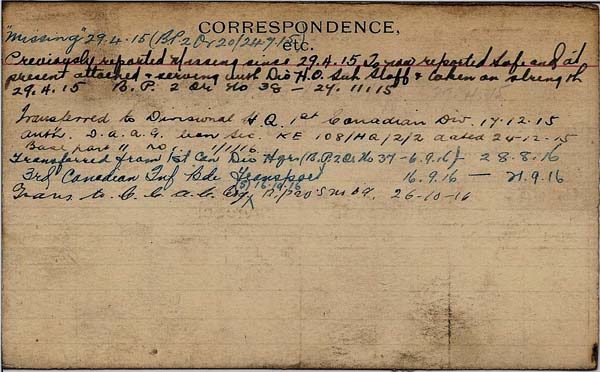 CORRESPONDENCE,
etc.
"Missing" 29.4.15 (B.P.2 Or 20/247.15)
Previously reported Missing since 29.4.15 To now reported Safe and at
present attached & serving with Div H.Q. Sub Staff & taken on strength
29.4.15 B.P. 2 Or No 38 - 27.11.15
Transferred to Divisional H Q. 1st Canadian Div. 17.12.15
auth. D.a.a.G. Can Sec. KE 108/HQ/2/2 dated 24-12-15
Base part II no 1/1/16
Transferred from 1st Can Div Hqrs (B.P2 Or No 37 - 6.9.16) - 28.8.16
3rd Canadian Inf Bde Transport 16.9.16 - 21.9.16
Trans. to. C.C.a.C. 26-10-16